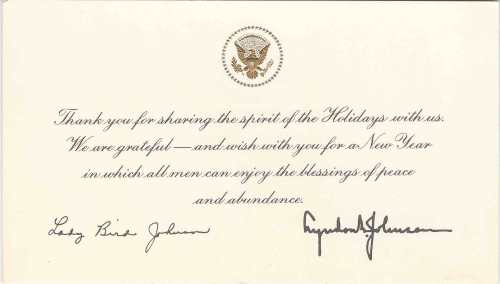 Thank you for sharing the spirit of the Holidays with us.
We are grateful — and wish with you for a New Year
in which all men can enjoy the blessings of peace
and abundance.
Lady Bird Johnson
Lyndon B. Johnson